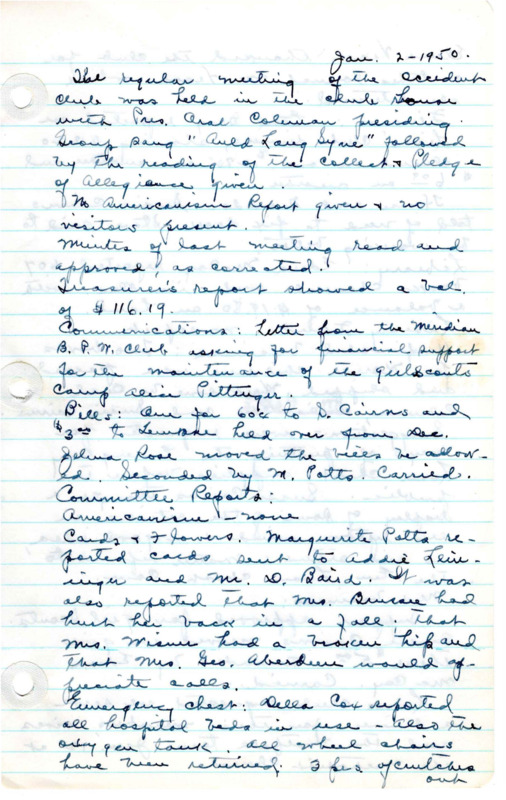 Jan. 2-1950.
The regular meeting of the Occident
Club was held in the Club House
with Pres. Oral Coleman presiding.
Group sang "Auld Lang Syne" followed
by the reading of the Collect & Pledge
of Allegiance given.
No Americanism Report given & no
visitors present.
Minutes of last meeting read and
approved, as corrected.
Treasurer's report showed a bal.
of $116.19.
Communications: Letter from the Meridian
B. P. W. Club asking for financial support
for the maintenance of the girl scouts
Camp Alice Pittenger.
Bills: One for 60¢ to D. Cairns and
$3.00 to held over from Dec.
Zelma Rose moved the bills be allow-
ed. Seconded by M. Potts. Carried.
Committee Reports:
Americanism - none
Cards & Flowers. Marguerite Potts re-
ported cards sent to Addie Lein-
inger and Mr. D. Baird. It was
also reported that Mrs. had
hurt her back in a fall. That
Mrs. Wisner had a broken hip and
that Mrs. Geo. Aberdeen would ap-
preciate calls.
Emergency chest: Della Cox reported
all hospital beds in use - also the
oxygen tank. All wheel chairs
have been returned. 3 prs. of crutches
out